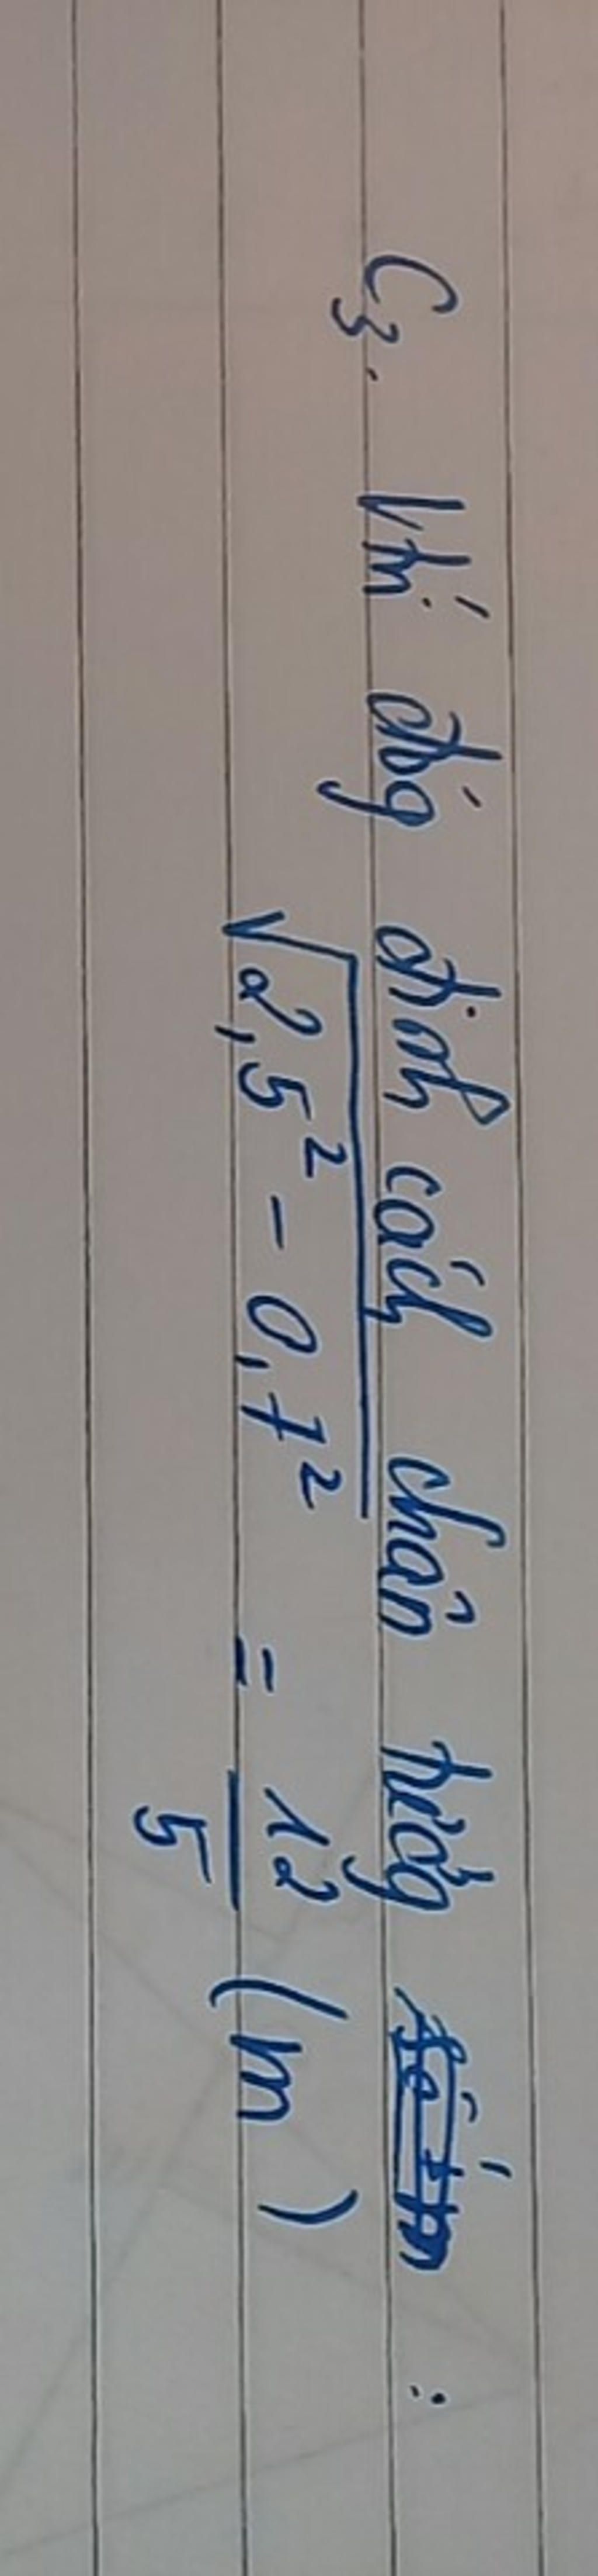 C3. Vtrí đóg đinh cách chân tườg :
√2,5² - 0,7² = 12/5 (m)